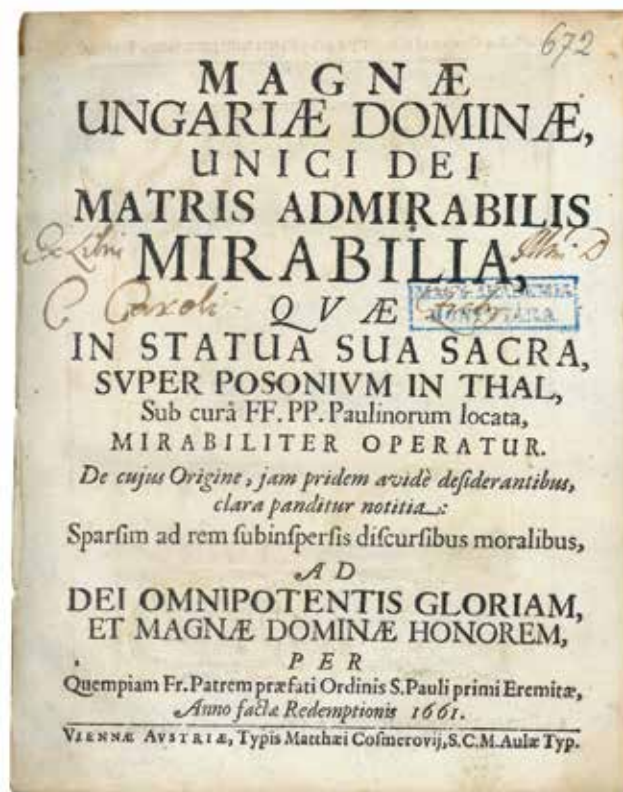 672
MAGNÆ
UNGARIÆ DOMINÆ,
UNICI DEI
MATRIS ADMIRABILIS
MIRABILIA,
QVÆ
IN STATUA SUA SACRA,
SVPER POSONIVM IN THAL,
Sub curâ FF. PP. Paulinorum locata,
MIRABILITER OPERATUR.
De cujus Origine, jam pridem avidè deſiderantibus,
clara panditur notitia:
Sparſim ad rem ſubinſperſis diſcurſibus moralibus,
AD
DEI OMNIPOTENTIS GLORIAM,
ET MAGNÆ DOMINÆ HONOREM,
PER
Quempiam Fr. Patrem præfati Ordinis S. Pauli primi Eremitæ,
Anno factæ Redemptionis 1661.
VIENNÆ AVSTRIÆ, Typis Matthæi Coſmerovij, S.C.M. Aulæ Typ.